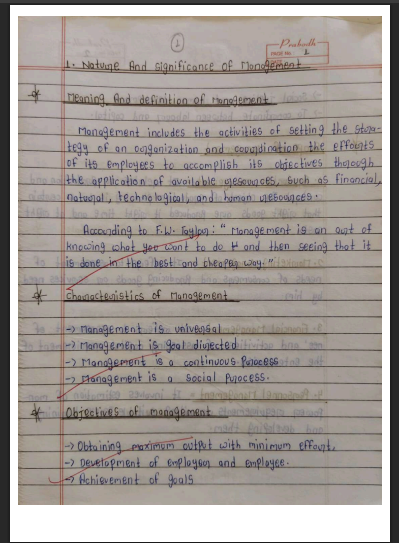 1
Prabodh
PAGE No. 1
1. Nature And significance of Management
* Meaning And definition of Management
Management includes the activities of setting the stra-
tegy of an organization and coordination the effourts
of its employees to accomplish its objectives thorough
the application of available resources, such as financial,
natural, technological, and human resources.
According to F.W. Taylor: "Management is an art of
knowing what you want to do it and then seeing that it
is done in the best and cheaper way."
* Characteristics of Management
-> Management is universal
-> Management is goal directed
-> Management is a continuous Process
-> Management is a social Process.
* Objectives of management
-> Obtaining maximum output with minimum effourt.
-> Development of employeer and employee.
-> Achievement of goals